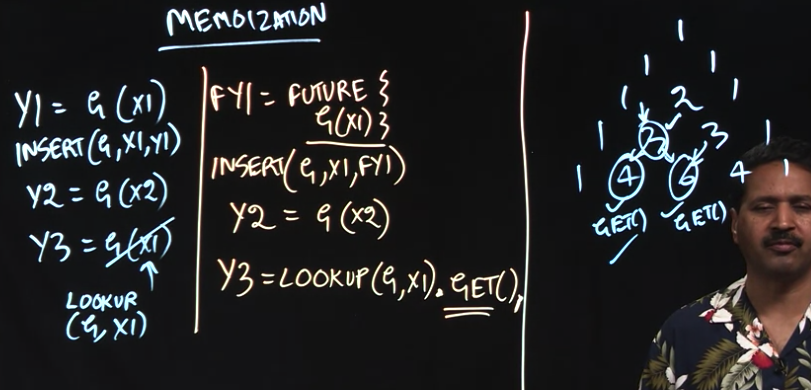 MEMOIZATION
Y1 = G(X1)
INSERT(G,X1,Y1)
Y2 = G(X2)
Y3 = G(X1)
LOOKUP
(G, X1)
FY1 = FUTURE {
G(X1)}
INSERT(G,X1,FY1)
Y2 = G(X2)
Y3 = LOOKUP(G,X1).GET();
1
1 1
1 2 1
1 3 3 1
1 4 6 4 1
GET() GET()